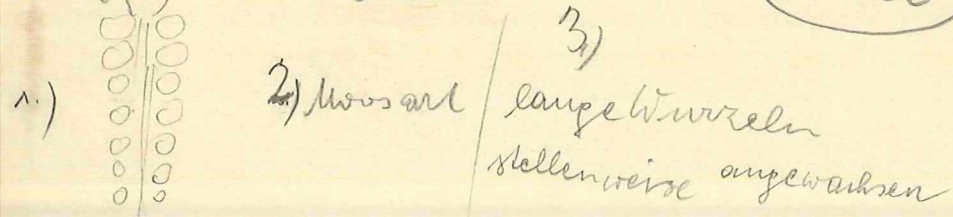 3.)
1.) 2.) Moosart / lange Wurzeln
stellenweise angewachsen